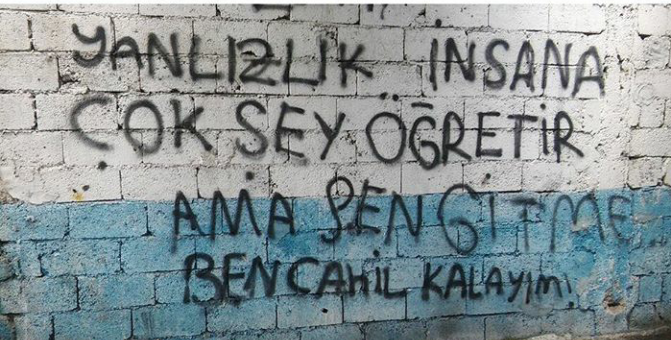 YANLIZLIK İNSANA
ÇOK ŞEY ÖĞRETİR
AMA SEN GİTME
BEN CAHİL KALAYIM!